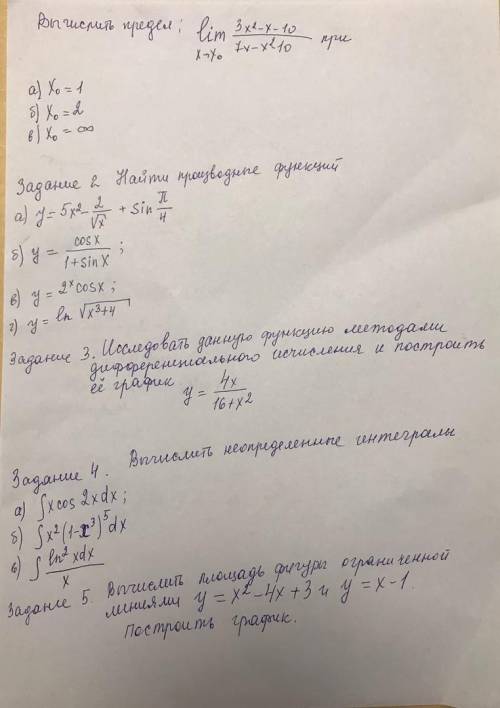 Вычислить предел: lim x→x₀ (3x²-x-10)/(7x-x²10) при
а) x₀ = 1
б) x₀ = 2
в) x₀ = ∞
Задание 2 Найти производные функций
а) y = 5x² - 2/√x + sin π/4
б) y = cosx/(1+sinx);
в) y = 2ˣcosx;
г) y = ln √(x³+4)
Задание 3. Исследовать данную функцию методами
дифференциального исчисления и построить
её график y = 4x/(16+x²)
Задание 4. Вычислить неопределенные интегралы
а) ∫xcos 2xdx;
б) ∫x²(1-x³)⁵dx
в) ∫ln²xdx/x
Задание 5. Вычислить площадь фигуры ограниченной
линиями y = x²-4x+3 и y = x-1.
Построить график.